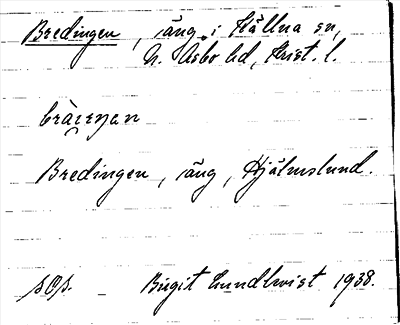 Bredingen, äng i Källna sn,
N. Åsbo hd, Krist. l.
Bredingen, äng, Hjälmslund.
Birgit Lundkvist 1938.